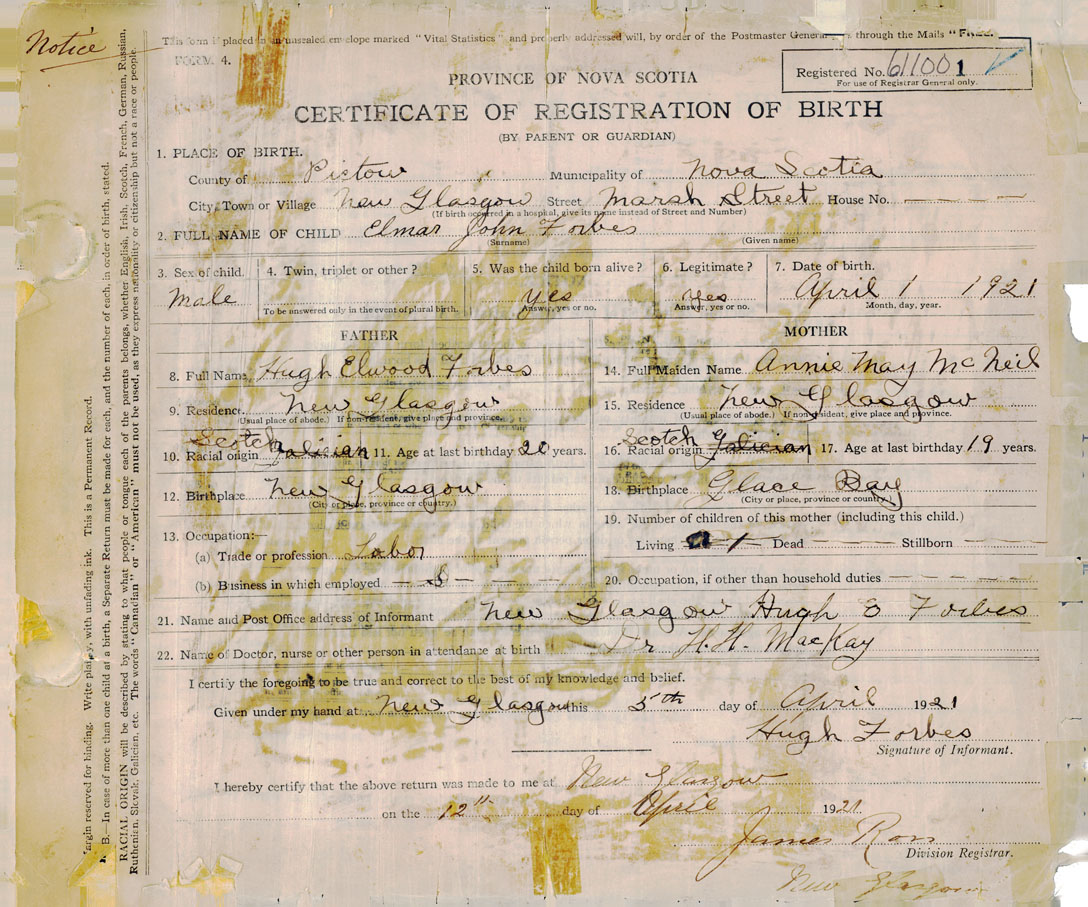 Notice
This form is placed in an unsealed envelope marked "Vital Statistics" and properly addressed will, by order of the Postmaster General, through the Mails "Free."
FORM 4.
Registered No. 611001
For use of Registrar General only.
PROVINCE OF NOVA SCOTIA
CERTIFICATE OF REGISTRATION OF BIRTH
(BY PARENT OR GUARDIAN)
1. PLACE OF BIRTH.
County of Pictou Municipality of Nova Scotia
City, Town or Village New Glasgow Street Marsh Street House No. — — — —
(If birth occurred in a hospital, give its name instead of Street and Number)
2. FULL NAME OF CHILD Elmar John Forbes
(Surname) (Given name)
3. Sex of child. 4. Twin, triplet or other? 5. Was the child born alive? 6. Legitimate? 7. Date of birth.
Male yes yes April 1 1921
To be answered only in the event of plural birth. Answer, yes or no. Answer, yes or no. Month, day, year.
FATHER MOTHER
8. Full Name Hugh Elwood Forbes
9. Residence. New Glasgow
(Usual place of abode.) If non-resident, give place and province.
Scotch
10. Racial origin Galician 11. Age at last birthday 20 years.
12. Birthplace New Glasgow
(City or place, province or country.)
13. Occupation:—
(a) Trade or profession Labor
(b) Business in which employed
14. Full Maiden Name Annie May McNeil
15. Residence New Glasgow
(Usual place of abode.) If non-resident, give place and province.
Scotch
16. Racial origin Galician 17. Age at last birthday 19 years.
18. Birthplace Glace Bay
(City or place, province or country.)
19. Number of children of this mother (including this child.)
Living 1 Dead — — Stillborn — — —
20. Occupation, if other than household duties — — — — —
21. Name and Post Office address of Informant New Glasgow Hugh E Forbes
22. Name of Doctor, nurse or other person in attendance at birth Dr H. H. MacKay
I certify the foregoing to be true and correct to the best of my knowledge and belief.
Given under my hand at New Glasgow this 5th day of April 1921
Hugh Forbes
Signature of Informant.
I hereby certify that the above return was made to me at New Glasgow
on the 12th day of April 1921
James Ross
Division Registrar.
New Glasgow
Margin reserved for binding. Write plainly, with unfading ink. This is a Permanent Record.
N. B. In case of more than one child at a birth, a Separate Return must be made for each, and the number of each, in order of birth, stated.
RACIAL ORIGIN will be described by stating to what people or tongue each of the parents belongs, whether English, Irish, Scotch, French, German, Russian,
Ruthenian, Slovak, Galician, etc. The words "Canadian" or "American" must not be used, as they express nationality or citizenship but not a race or people.